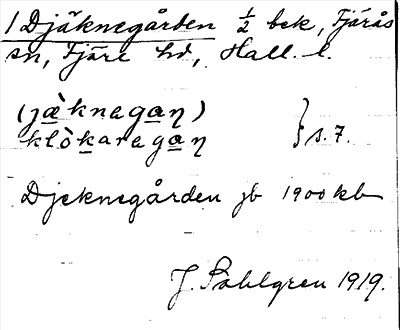 1 Djäknegården 1/2 bek, Fjärås
sn, Fjäre hd, Hall. l.
(jæ̀knagaɳ)
klò̀karegaɳ } s. 7.
Djeknegården jb 1900 kb
J. Sahlgren 1919.